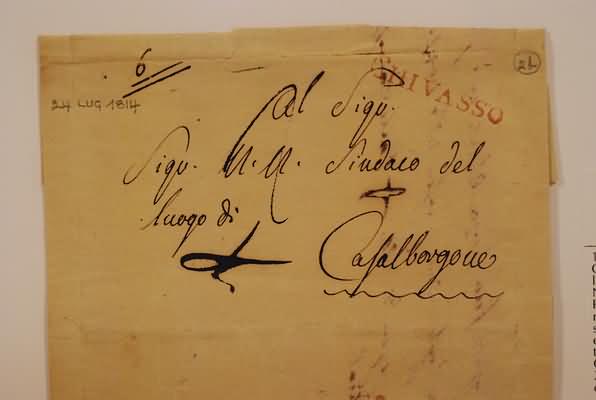 6
24 LUG 1814
24
CHIVASSO
Al Sigr.
Sigr. N. N. Sindaco del
luogo di
Casalborgone